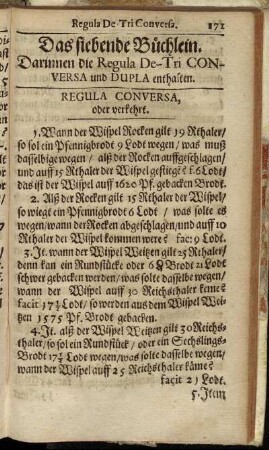 Regula De-Tri Conversa. 171
Das siebende Büchlein.
Darinnen die Regula De-Tri CON-
VERSA und DUPLA enthalten.
REGULA CONVERSA,
oder verkehrt.
1. Wann der Wispel Rocken gilt 19 Rthaler/
so sol ein Pfennigbrodt 9 Lodt wegen / was muß
dasselbige wegen / alß der Rocken auffgeschlagen/
und auff 15 Rthaler der Wispel gestiegē? f. 6 Lodt/
das ist der Wispel auff 1620 Pf. gebacken Brodt.
2. Alß der Rocken gilt 15 Rethaler der Wispel/
so wiegt ein Pfennigbrodt 6 Lodt / was solte es
wegen/wann der Rocken abgeschlagen/und auff 10
Rthaler der Wispel kommen were? fac: 9 Lodt.
3. It. wann der Wispel Weitzen gilt 25 Rthaler/
denn kan ein Rundstück oder 6 ₰ Brodt 21 Lodt
schwer gebacken werden/was solte dasselbe wegen/
wann der Wispel auff 30 Reichsthaler keme?
facit 17½ Lodt/so werden aus dem Wispel Wei-
tzen 1575 Pf. Brodt gebacken.
4. It. alß der Wispel Weitzen gilt 30 Reichs-
thaler/so sol ein Rundstück / oder ein Sechslings-
Brodt 17½ Lodt wegen/was solte dasselbe wegen/
wann der Wispel auff 25 Reichsthaler käme?
facit 21 Lodt.
5. Item